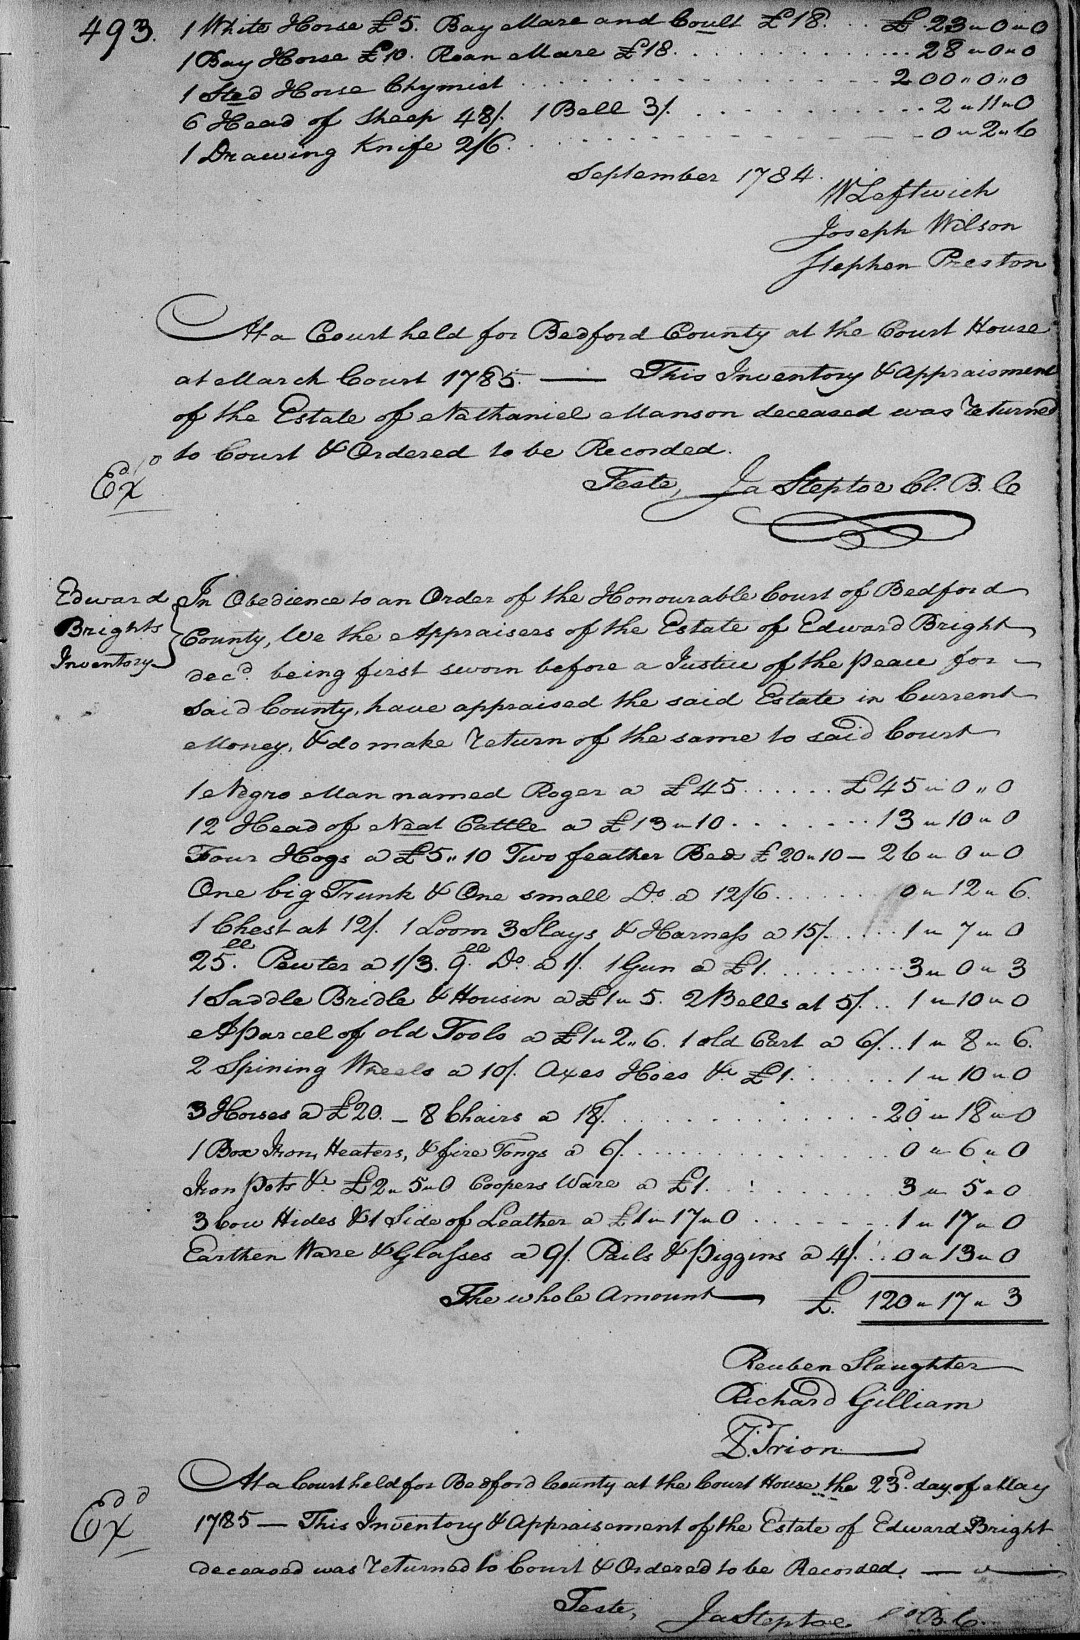 493. 1 White Horse £5. Bay Mare and Coult £18. . . £ 23 " 0 " 0
1 Bay Horse £10. Roan Mare £18 . . . . 28 " 0 " 0
1 Sted Horse Chymist . . . . 200 " 0 " 0
6 Head of Sheep 48/. 1 Bell 3/. . . . . 2 " 11 " 0
1 Drawing Knife 2/6. . . . . 0 " 2 " 6
September 1784.
W Leftwich
Joseph Wilson
Stephen Preston
At a Court held for Bedford County at the Court House
at March Court 1785. — This Inventory & Appraisment
of the Estate of Nathaniel Manson deceased was returned
to Court & Ordered to be Recorded.
Exd
Teste, Ja Steptoe Cl. B. C
Edward
Brights
Inventory
In Obedience to an Order of the Honourable Court of Bedford
County, We the Appraisers of the Estate of Edward Bright
decd. being first sworn before a Justice of the peace for
said County, have appraised the said Estate in Current
Money, & do make return of the same to said Court
1 Negro Man named Roger a £45 . . . . . . £45 " 0 " 0
12 Head of Neat Cattle a £13 " 10 . . . . . . 13 " 10 " 0
Four Hogs a £5 " 10 Two feather Beds £20 " 10 — 26 " 0 " 0
One big Trunk & One small Do. a 12/6 . . . . . . 0 " 12 " 6.
1 Chest at 12/. 1 Loom 3 Slays & Harness a 15/. . . . 1 " 7 " 0
25 ll. Pewter a 1/3. 9 ll. Do. a 1/. 1 Gun a £1 . . . . . . 3 " 0 " 3
1 Saddle Bridle & Housin a £1 " 5. 2 Bells at 5/. . . 1 " 10 " 0
A Parcel of old Tools a £1 " 2 " 6. 1 old Cart a 6/. . . 1 " 8 " 6.
2 Spining Wheels a 10/. Axes Hoes &c £1. . . . . . 1 " 10 " 0
3 Horses a £20. — 8 Chairs a 18/. . . . . . 20 " 18 " 0
1 Box Iron, Heaters, & fire Tongs a 6/. . . . . . 0 " 6 " 0
Iron Pots &c £2 " 5 " 0 Coopers Ware a £1. . . . . . 3 " 5 " 0
3 Cow Hides & 1 Side of Leather a £1 " 17 " 0 . . . . . . 1 " 17 " 0
Earthen Ware & Glasses a 9/. Pails & Piggins a 4/. . . 0 " 13 " 0
The whole Amount — £. 120 " 17 " 3
Reuben Slaughter
Richard Gilliam
Trion
At a Court held for Bedford County at the Court House the 23d. day of May
Exd
1785 — This Inventory & Appraisement of the Estate of Edward Bright
deceased was returned to Court & Ordered to be Recorded. —
Teste, Ja Steptoe B. C.